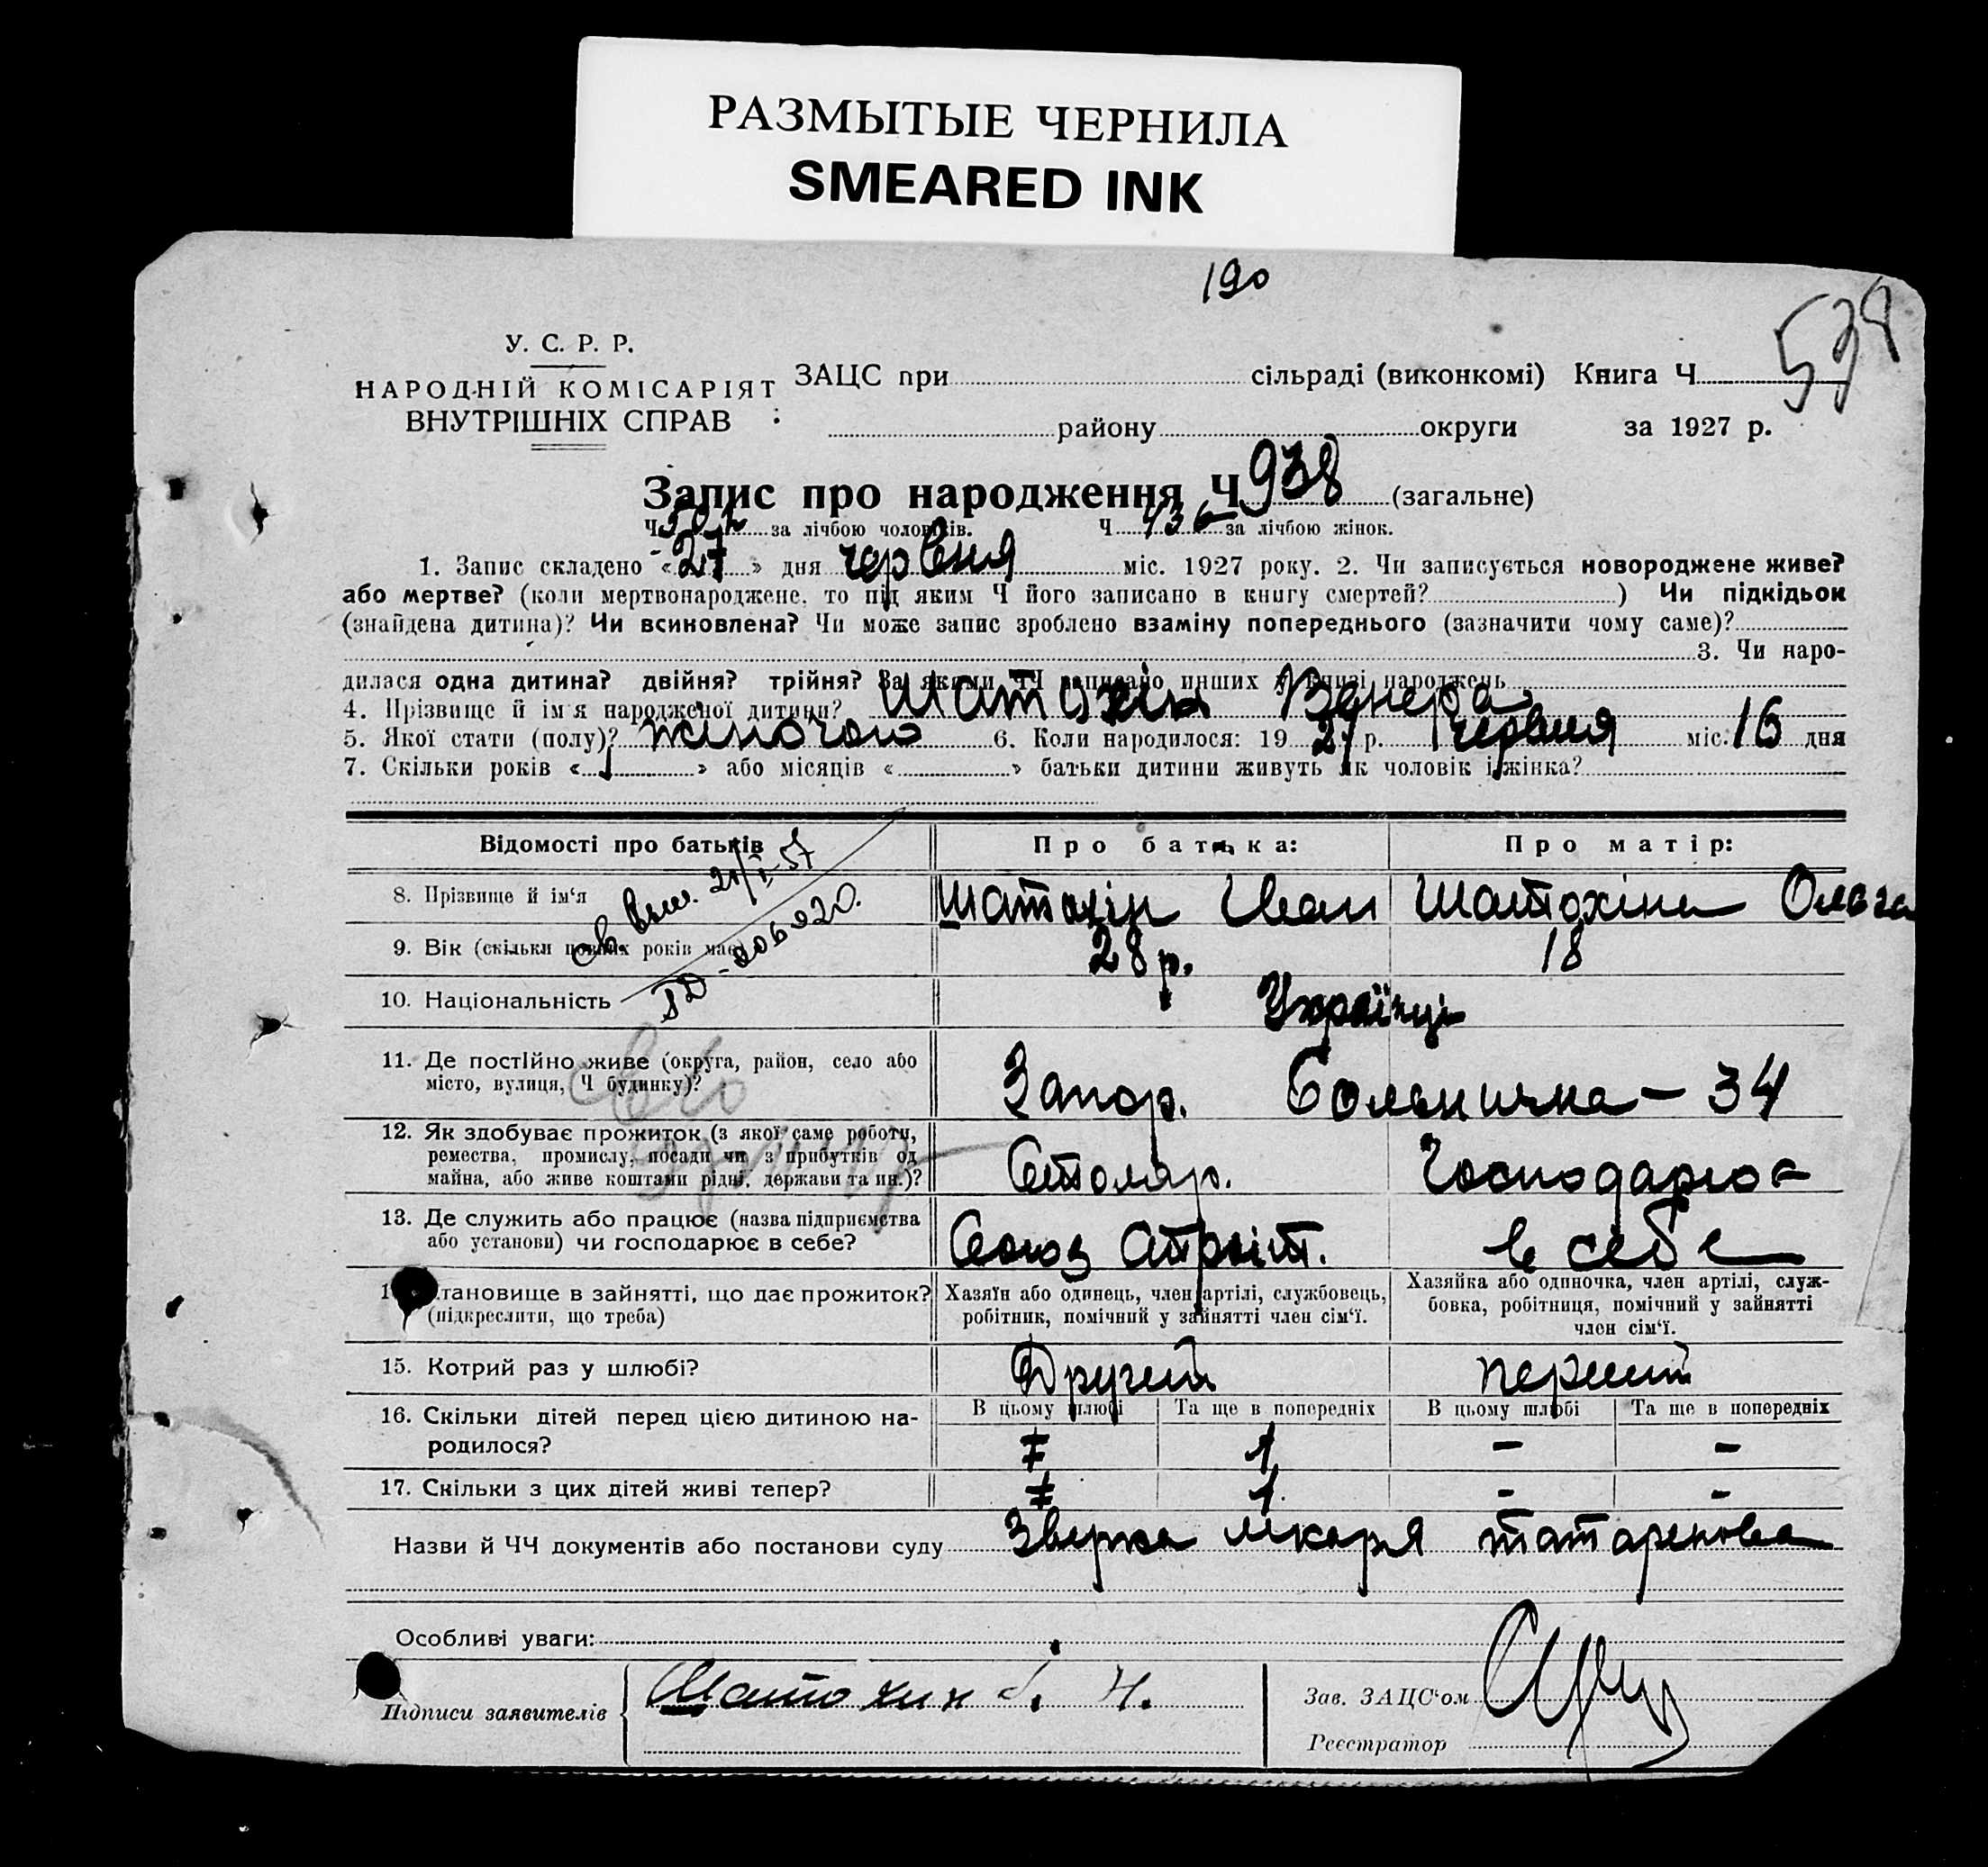 РАЗМЫТЫЕ ЧЕРНИЛА
SMEARED INK
190
538
У. С. Р. Р.
НАРОДНІЙ КОМІСАРІЯТ
ВНУТРІШНІХ СПРАВ
ЗАЦС при сільраді (виконкомі) Книга Ч
району округи за 1927 р.
Запис про народження Ч 938 (загальне)
Ч за лічбою чоловіків. Ч 436 за лічбою жінок.
1. Запис складено «27» дня червня міс. 1927 року. 2. Чи записується новороджене живе?
або мертве? (коли мертвонароджене, то під яким Ч його записано в книгу смертей? ) Чи підкідьок
(знайдена дитина)? Чи всиновлена? Чи може запис зроблено взаміну попереднього (зазначити чому саме)?
3. Чи наро-
дилася одна дитина? двійня? трійня? За якими ЧЧ записано инших у книзі народжень
4. Прізвище й ім'я народженої дитини? Шатохін Венера
5. Якої стати (полу)? жіночою 6. Коли народилося: 1927 р. червня міс. 16 дня
7. Скільки років «1» або місяців « » батьки дитини живуть як чоловік і жінка?
Відомості про батьків
Про батька:
Про матір:
св. выш. 21/I-57
206920.
8. Прізвище й ім‘я Шатохін Иван Шатохіна Ольга
9. Вік (скільки повних років має) 28 р. 18
10. Національність Українці
11. Де постійно живе (округа, район, село або
місто, вулиця, Ч будинку)? Запор. Больнична – 34
12. Як здобуває прожиток (з якої саме роботи,
ремества, промислу, посади чи з прибутків од
майна, або живе коштами рідні, держави та ин.)? Столяр. Господарює
13. Де служить або працює (назва підприємства
або установи) чи господарює в себе? Союз Строіт. в себе
тановище в зайнятті, що дає прожиток?
(підкреслити, що треба)
Хазяїн або одинець, член артілі, службовець,
робітник, помічний у зайнятті член сім‘ї.
Хазяйка або одиночка, член артілі, служ-
бовка, робітниця, помічний у зайнятті
член сім‘ї.
15. Котрий раз у шлюбі? Другий перший
16. Скільки дітей перед цією дитиною на-
родилося?
В цьому шлюбі Та ще в попередніх В цьому шлюбі Та ще в попередніх
1 – –
17. Скільки з цих дітей живі тепер? 1. – –
Назви й ЧЧ документів або постанови суду лікаря
Особливі уваги:
Підписи заявителів Шатохин
Зав. ЗАЦС‘ом
Реєстратор